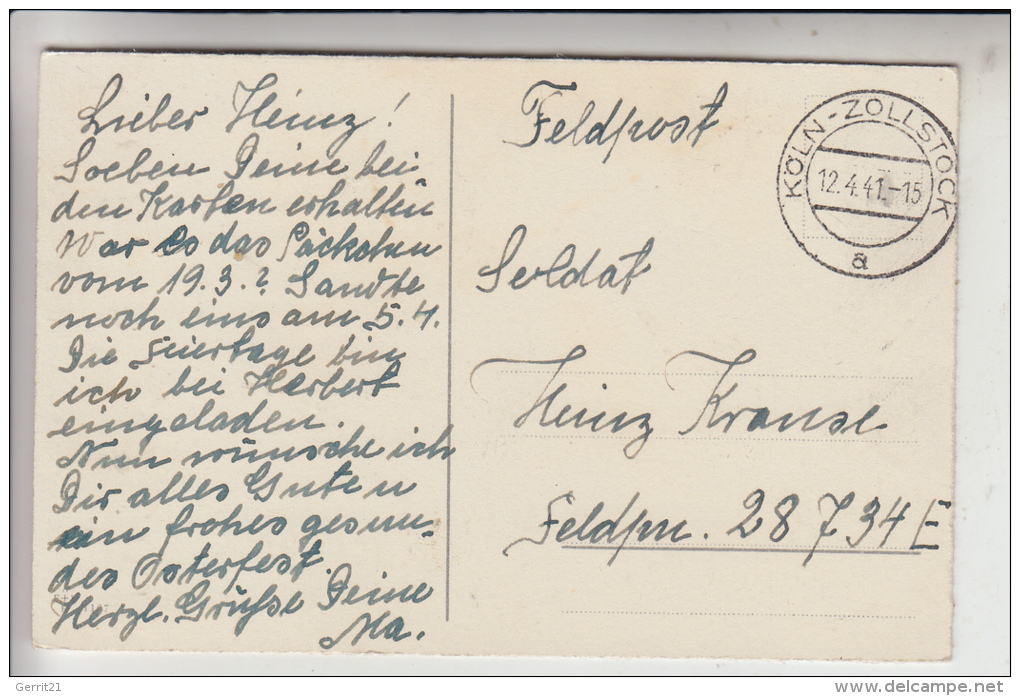 Lieber Heinz!
Soeben Deine bei
den Karten erhalten
War es das Päckchen
vom 19.3.? Sandte
noch eins am 5.4.
Die Feiertage bin
ich bei Herbert
eingeladen.
Nun wünsche ich
Dir alles Guten
ein frohes gesun-
des Osterfest.
Herzl. Grüße Deine
Ma.
Feldpost
KÖLN-ZOLLSTOCK
12.4.41.-15
a
Soldat
Heinz Krause
Feldpn. 28 734 E
Gerrit21
delcampe.net